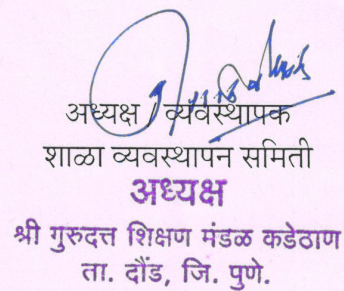 अध्यक्ष / व्यवस्थापक
शाळा व्यवस्थापन समिती
अध्यक्ष
श्री गुरुदत्त शिक्षण मंडळ कडेठाण
ता. दौंड, जि. पुणे.